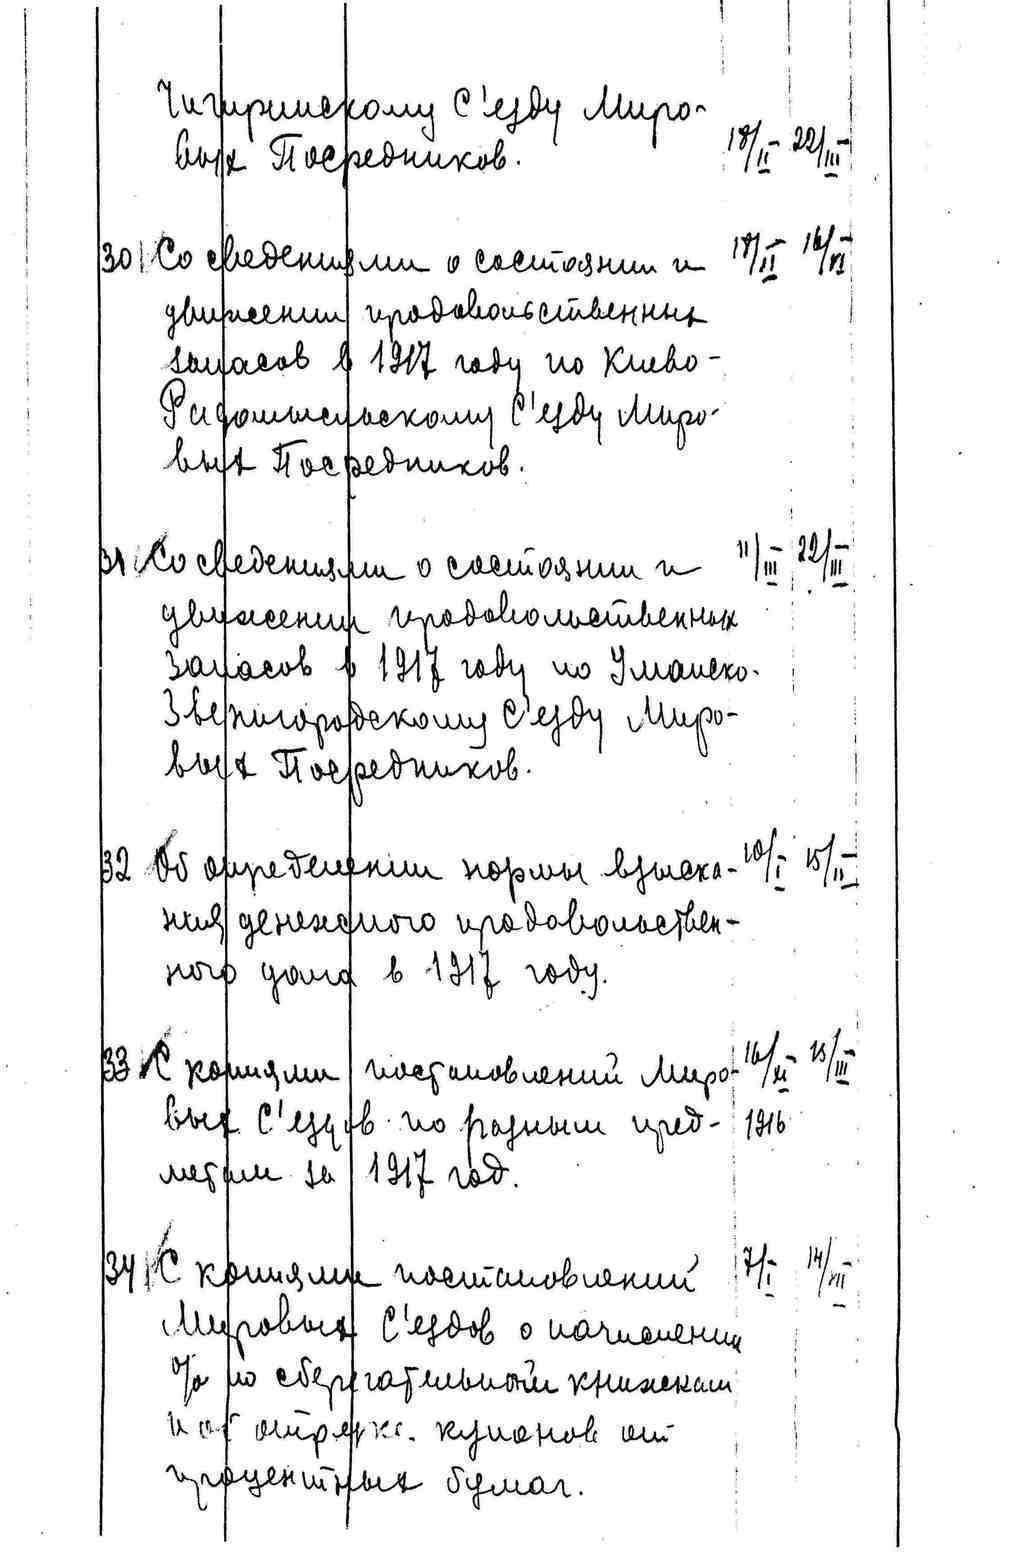 Чигиринскому С'езду Миро-
вых Посредников. 18/II 22/III
30 Со сведениями о состоянии и 18/II 16/VI
движении продовольственных
запасов в 1917 году по Киево-
Радомысльскому С'езду Миро-
вых Посредников.
31 Со сведениями о состоянии и 11/III 22/III
движении продовольственных
запасов в 1917 году по Уманско-
Звенигородскому С'езду Миро-
вых Посредников.
32 Об определении нормы взыска- 10/I 15/II
ния денежного продовольствен-
ного долга в 1917 году.
33 С копиями постановлений Миро- 16/XI 15/III
вых С'ездов по разным пред- 1916
метам за 1917 год.
34 С копиями постановлений 7/I 14/XII
Мировых С'ездов о начислении
% по сберегательным книжкам
и об отрезке. купонов от
процентных бумаг.